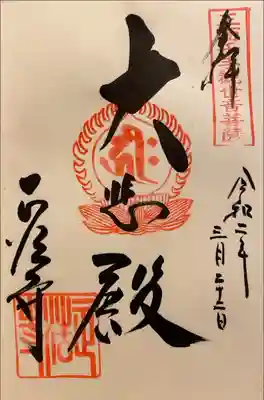 奉拝
大悲殿
正法寺
令和二年
三月二十二日